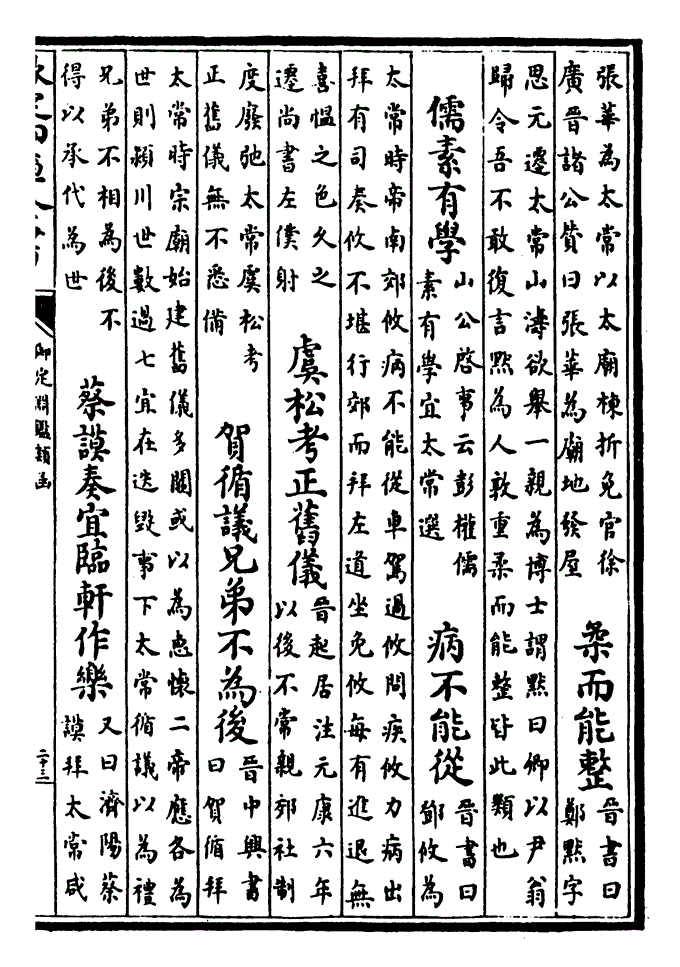 張華為太常以太廟棟折免官徐
廣晉諸公贊曰張華為廟地發屋
柔而能整
晉書曰
鄭默字
思元遷太常山濤欲舉一親為博士謂默曰卿以尹翁
歸令吾不敢復言默為人敦重柔而能整皆此類也
儒素有學
山公啓事云彭權儒
素有學宜太常選
病不能從
晉書曰
鄧攸為
太常時帝南郊攸病不能從車駕過攸問疾攸力病出
拜有司奏攸不堪行郊而拜左道坐免攸每有進退無
喜慍之色久之
遷尚書左僕射
虞松考正舊儀
晉起居注元康六年
以後不常親郊社制
度廢弛太常虞松考
正舊儀無不悉備
賀循議兄弟不為後
晉中興書
曰賀循拜
太常時宗廟始建舊儀多闕或以為惠懷二帝應各為
世則潁川世數過七宜在迭毀事下太常循議以為禮
兄弟不相為後不
得以承代為世
蔡謨奏宜臨軒作樂
又曰濟陽蔡
謨拜太常咸
欽定四庫全書
御定淵鑑類函
二十三